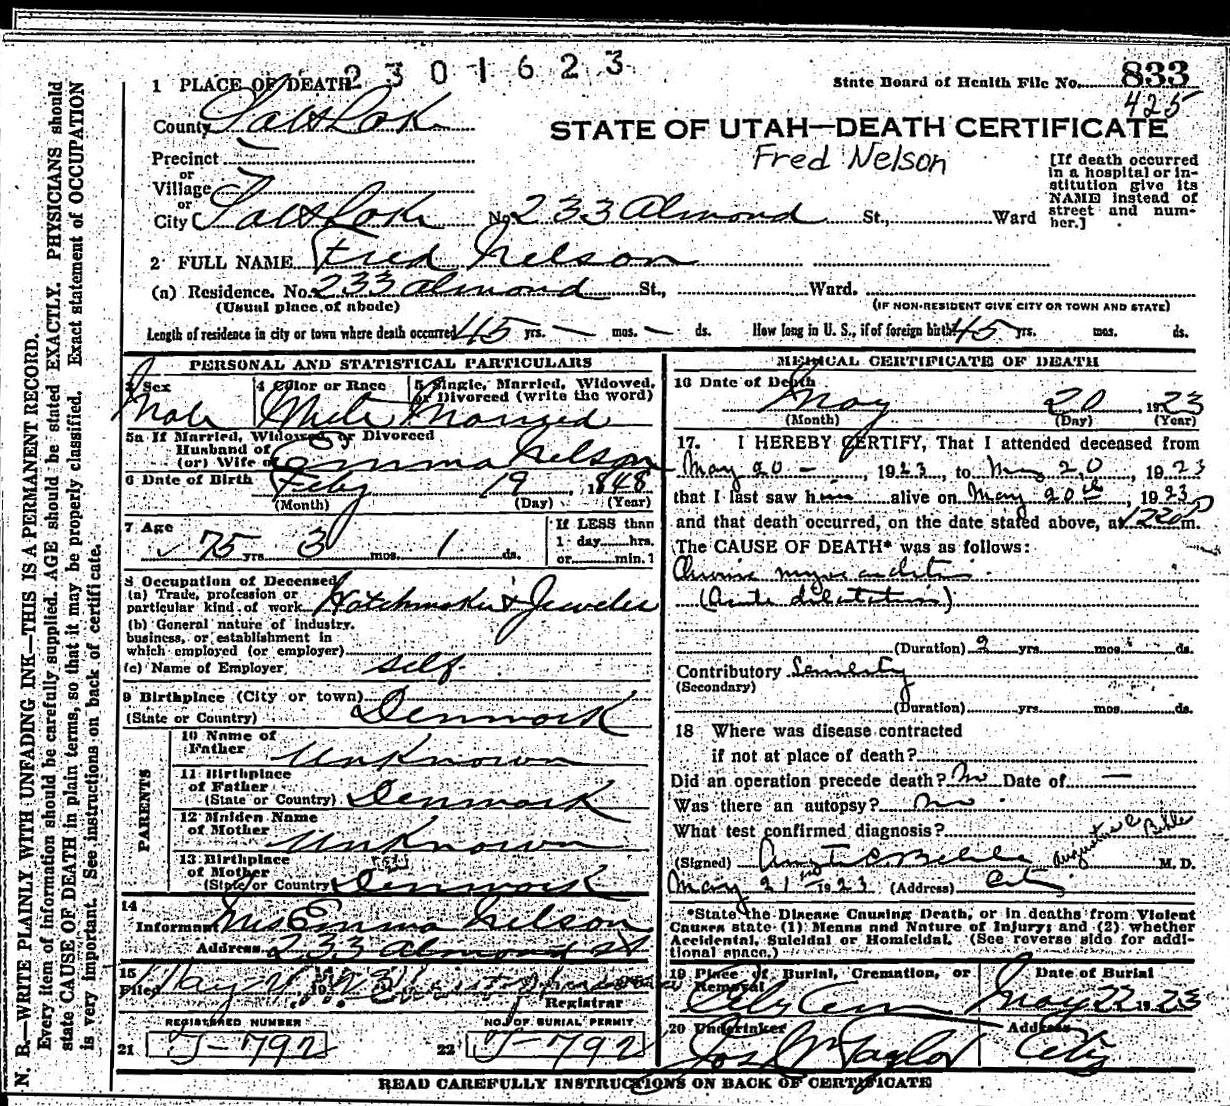 2301623
State Board of Health File No. 833
425
1 PLACE OF DEATH
County Salt Lake
STATE OF UTAH—DEATH CERTIFICATE
Fred Nelson
Precinct
or
Village
or
City Salt Lake No. 233 Almond St., Ward
[If death occurred
in a hospital or in-
stitution give its
NAME instead of
street and num-
ber.]
2 FULL NAME Fred Nelson
(a) Residence. No. 233 Almond St., Ward.
(Usual place of abode) (IF NON-RESIDENT GIVE CITY OR TOWN AND STATE)
Length of residence in city or town where death occurred 45 yrs. — mos. — ds. How long in U. S., if of foreign birth 45 yrs. mos. ds.
PERSONAL AND STATISTICAL PARTICULARS
3 Sex 4 Color or Race 5 Single, Married, Widowed,
or Divorced (write the word)
Male White Married
5a If Married, Widowed or Divorced
Husband of
(or) Wife of Emma Nelson
6 Date of Birth Feby 19 1848
(Month) (Day) (Year)
7 Age If LESS than
75 yrs. 3 mos. 1 ds. 1 day hrs.
or min.?
8 Occupation of Deceased
(a) Trade, profession or
particular kind of work Watchmaker & Jeweler
(b) General nature of industry,
business, or establishment in
which employed (or employer)
(c) Name of Employer self
9 Birthplace (City or town)
(State or Country) Denmark
PARENTS
10 Name of
Father Unknown
11 Birthplace
of Father
(State or Country) Denmark
12 Maiden Name
of Mother Unknown
13 Birthplace
of Mother
(State or Country) Denmark
14
Informant Mrs Emma Nelson
Address 233 Almond St
15
Filed May
Registrar
REGISTERED NUMBER NO. OF BURIAL PERMIT
21 J-792 22 J-792
MEDICAL CERTIFICATE OF DEATH
16 Date of Death
May 20 1923
(Month) (Day) (Year)
17. I HEREBY CERTIFY, That I attended deceased from
May 20 - , 1923, to May 20, 1923
that I last saw him alive on May 20th, 1923
and that death occurred, on the date stated above, at 1220 P m.
The CAUSE OF DEATH* was as follows:
Chronic myocarditis
(Acute dilatation)
(Duration) 2 yrs. mos. ds.
Contributory Senility
(Secondary)
(Duration) yrs. mos. ds.
18 Where was disease contracted
if not at place of death?
Did an operation precede death? No Date of —
Was there an autopsy? no
What test confirmed diagnosis?
(Signed) M. D.
May 21st 1923 (Address) City
*State the Disease Causing Death, or in deaths from Violent
Causes state (1) Means and Nature of Injury; and (2) whether
Accidental, Suicidal or Homicidal. (See reverse side for addi-
tional space.)
19 Place of Burial, Cremation, or
Removal Date of Burial
City Cem May 22 1923
20 Undertaker Address
Jos Wm Taylor City
READ CAREFULLY INSTRUCTIONS ON BACK OF CERTIFICATE
N. B.—WRITE PLAINLY WITH UNFADING INK—THIS IS A PERMANENT RECORD.
Every item of information should be carefully supplied. AGE should be stated EXACTLY. PHYSICIANS should
state CAUSE OF DEATH in plain terms, so that it may be properly classified. Exact statement of OCCUPATION
is very important. See instructions on back of certificate.